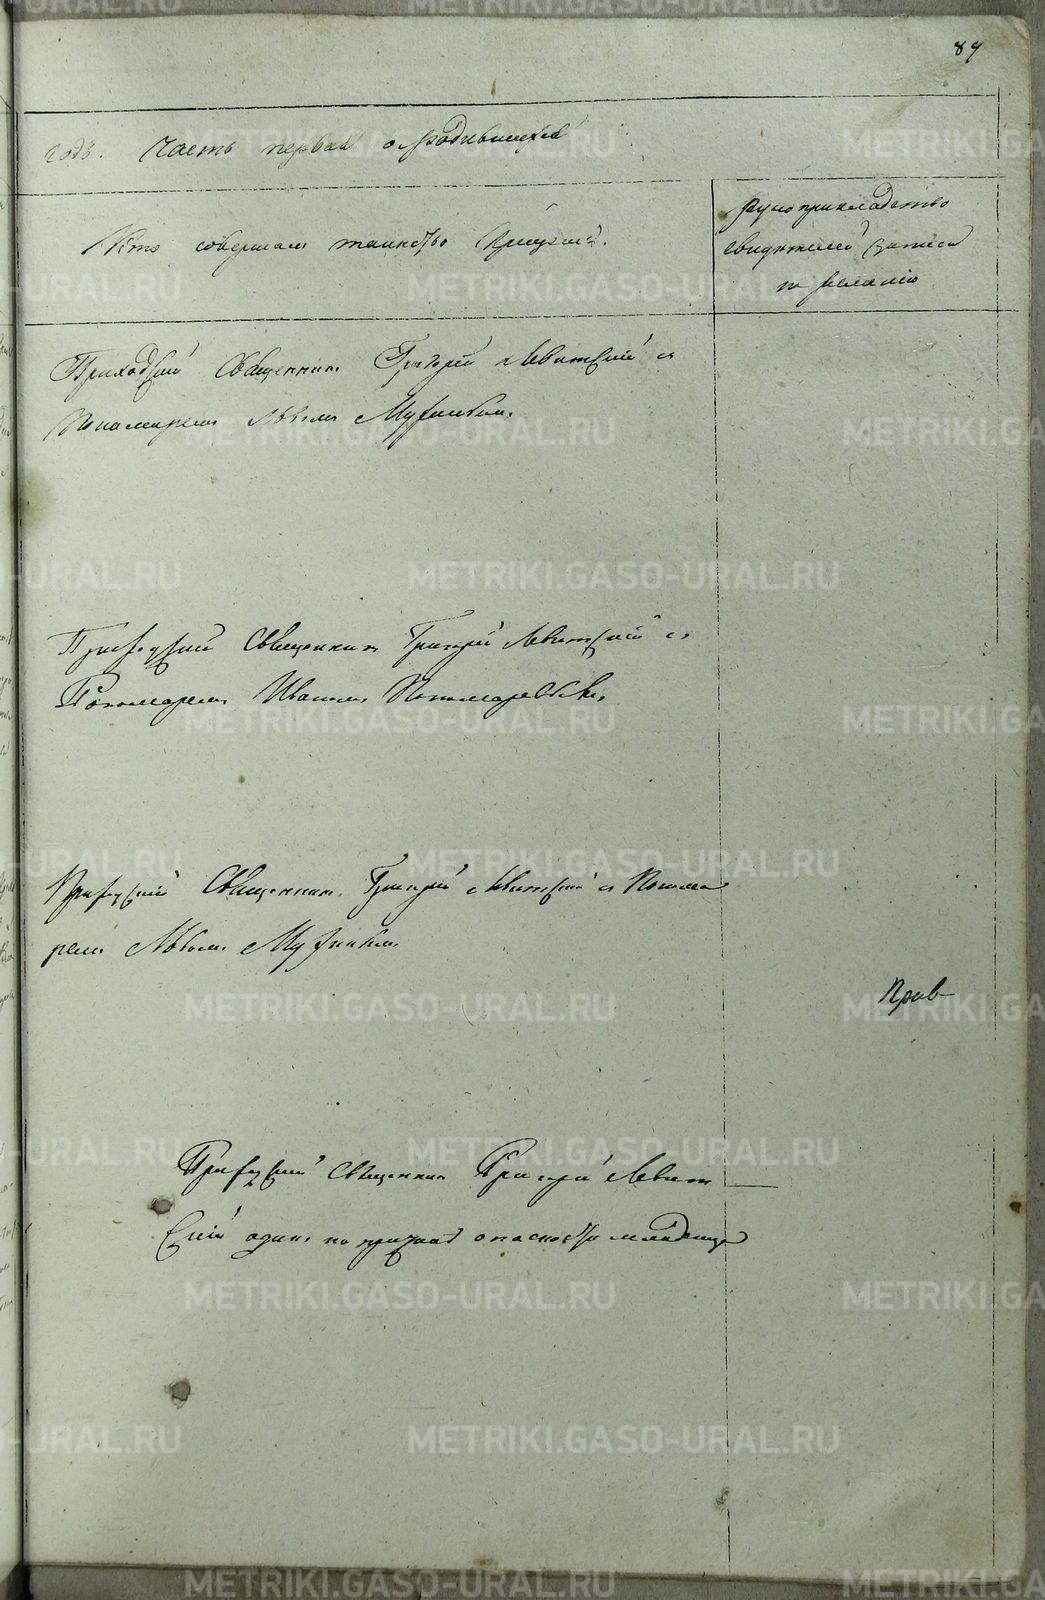 87
годъ. Часть первая о родившихся
Кто совершалъ таинство крещенія.
Рукоприкладство
свидѣтелей записи
по желанію
Приходскій Священникъ Григорій Левитскій съ
Пономаремъ Львомъ
Приходскій Священникъ Григорій Левитскій съ
Пономаремъ Иваномъ Пономаревымъ.
Приходскій Священникъ Григорій Левитскій съ Понома
ремъ Львомъ
Прив
Приходскій Священникъ Григорій Левит
скій одинъ по опасности младенца
METRIKI.GASO-URAL.RU